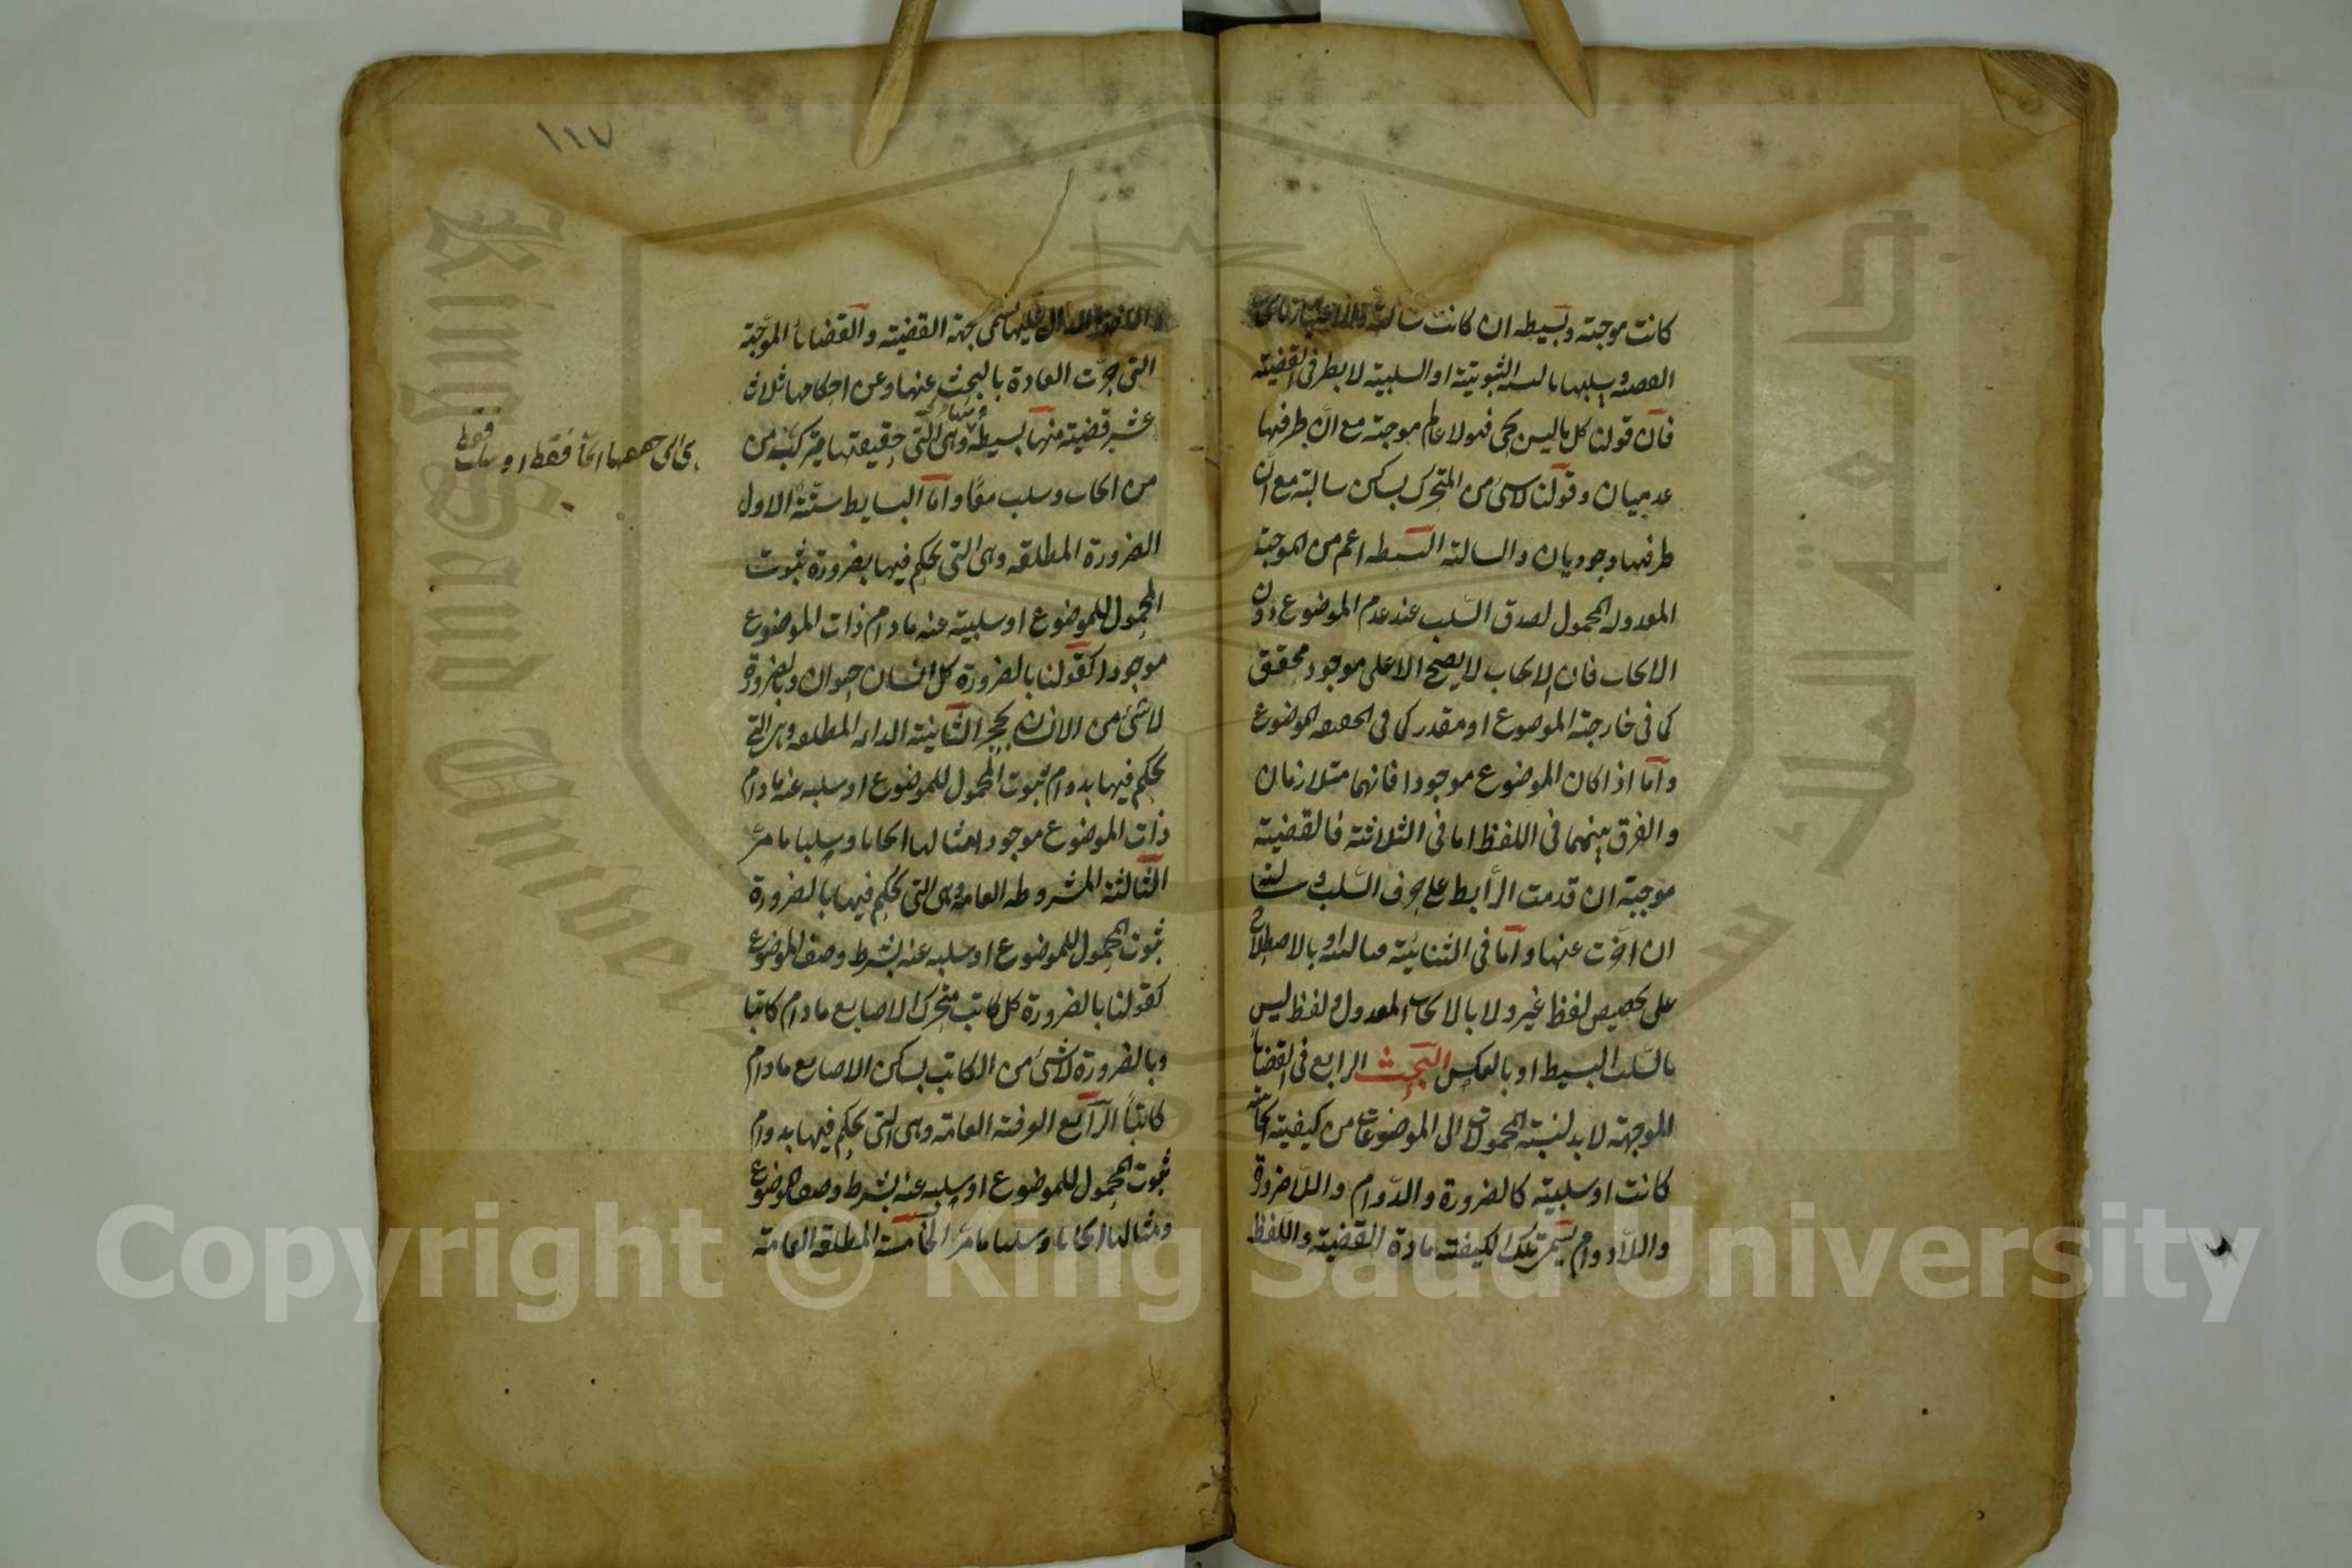 كانت موجبة وبسيطه ان كانت سالبة والاعتبار بايجاب
القضية وسلبها بالنسبة الثبوتية او السلبية لا بطرفي القضية
فان قولنا كل ما ليس بحي فهو لا عالم موجبة مع ان طرفيها
عدميان وقولنا لا شئ من المتحرك بساكن سالبة مع ان
طرفيها وجوديان والسالبة البسيطه اعم من الموجبة
المعدولة المحمول لصدق السلب عند عدم الموضوع دون
الايجاب فان الايجاب لا يصح الا على موجود محقق
كما في خارجية الموضوع او مقدر كما في الحقيقة الموضوع
واما اذا كان الموضوع موجودا فانهما متلازمان
والفرق بينهما في اللفظ اما في الثلاثية فالقضية
موجبة ان قدمت الرابط على حرف السلب وسالبة
ان اخرت عنها واما في الثنائية فبالنية او بالاصطلاح
على تخصيص لفظ غير ولا بالايجاب المعدول ولفظ ليس
بالسلب البسيط او بالعكس البحث الرابع في القضايا
الموجهة لا بد لنسبة المحمولات الى الموضوعات من كيفية ايجابية
كانت او سلبية كالضرورة والدوام واللاضرورة
واللادوام يسمى تلك الكيفية مادة القضية واللفظ
١١٧
الدال عليها يسمى جهة القضية والقضايا الموجهة
التي جرت العادة بالبحث عنها وعن احكامها ثلاث
عشر قضية منها بسيطة وهي التي حقيقتها مركبة من
ايجاب فقط او سلب فقط
من ايجاب وسلب معا واما البسايط ستة الاول
الضرورة المطلقه وهي التي يحكم فيها بضرورة ثبوت
المحمول للموضوع او سلبية عنه مادام ذات الموضوع
موجودا كقولنا بالضرورة كل انسان حيوان وبالضرورة
لا شئ من الانسان بحجر الثانية الدائمة المطلقه وهي التي
يحكم فيها بدوام ثبوت المحمول للموضوع او سلبه عنه مادام
ذات الموضوع موجودا مثالها ايجابا وسلبا ما مر
الثالثة المشروطه العامة وهي التي يحكم فيها بالضرورة
ثبوت المحمول للموضوع او سلبه عنه بشرط وصف الموضوع
كقولنا بالضرورة كل كاتب متحرك الاصابع مادام كاتبا
وبالضرورة لا شئ من الكاتب بساكن الاصابع مادام
كاتبا الرابع العرفية العامة وهي التي يحكم فيها بدوام
ثبوت المحمول للموضوع او سلبه عنه بشرط وصف الموضوع
ومثالها ايجابا وسلبا ما مر الخامسة المطلقة العامة